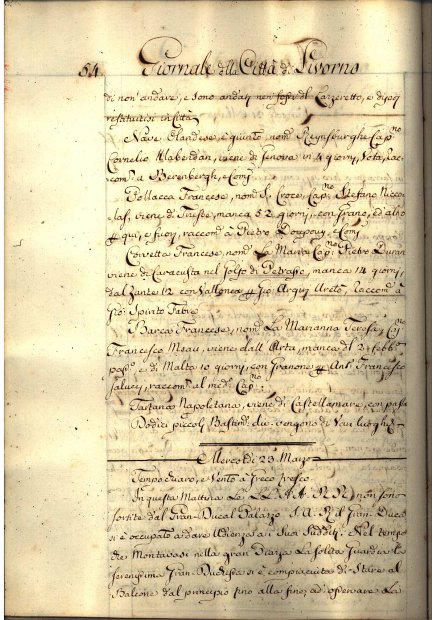 54. Giornale della Città di Livorno
di non andare, e sono andati ne' fossi del Lazzeretto, e di poi
restituitisi in Città
Nave Olandese è giunto nom.ª Reynsburghe Cap.no
Cornelio viene di Genova in 4 giorni, Vota, Rac-
com.ª a Berenbergh, e Comp.
Pollacca Francese, nom.ª S. Croce, Cap.no Stefano Nicco-
las, viene di Trieste, manca 52 giorni, con grano, ed altro
p qui, e fuori, raccom.ª à Pietro e Comp.
Corvetta Francese, nom.ª La Maria Cap.no Pietro Duran
viene di nel golfo di Petrasso, manca 14 giorni,
dal Zante 12 con Vallonea p Gio: Raccom.ª à
Gio: Spirito Fabre
Barca Francese, nom.ª La Marianna Teresa, Cap.no
Francesco viene dall'Arta, manca dì 24 Febb.o
pass.o e di Malta 10 giorni, con Granone p Ant. Francesco
Salucci, raccom.ª al med.o Cap.no
Tartana Napoletana, viene di Castellamare, con
Dodici piccoli Bastim.ti che vengono di Vari luoghi
Mercoledì 23 Marzo
Tempo chiaro, e Vento à Greco fresco
In questa Mattina Le LL. AA. RR. non sono
sortite dal Gran-Ducal Palazzo S. A. R. il Gran-Duca
si è occupato a dare Udienza a i Suoi Sudditi. Nel tempo
che Montavasi nella gran Piazza La solita Guardia La
Serenissima Gran-Duchessa si è compiaciuta di Stare al
Balcone dal principio fino alla fine, ad osservare La